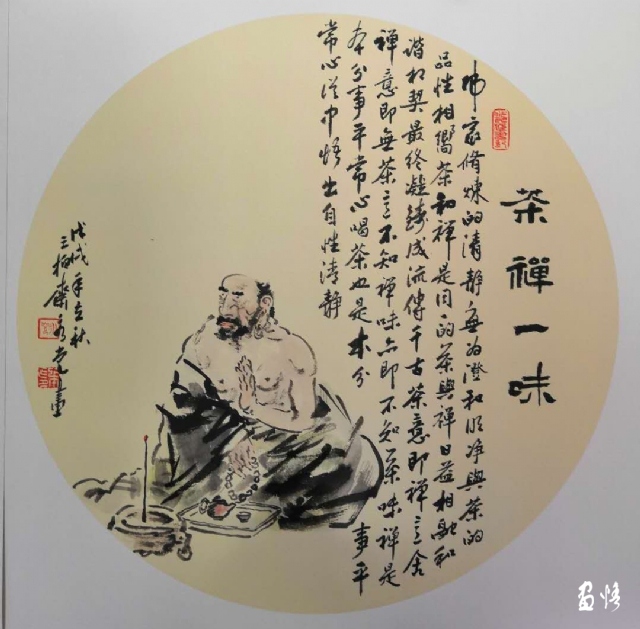 茶禪一味
佛家脩煉的清靜無為澄和明净與茶的
品性相嚮茶和禪是目的茶與禪日益相融和
諧相契最終凝鑄成流傳千古茶意即禪意舍
禪意即無茶意不知禪味亦即不知茶味禪是
本分事平常心喝茶也是本分
事平
常心從中悟出自性清靜
戊戌年立秋
三柏齋永光畫
畫悟